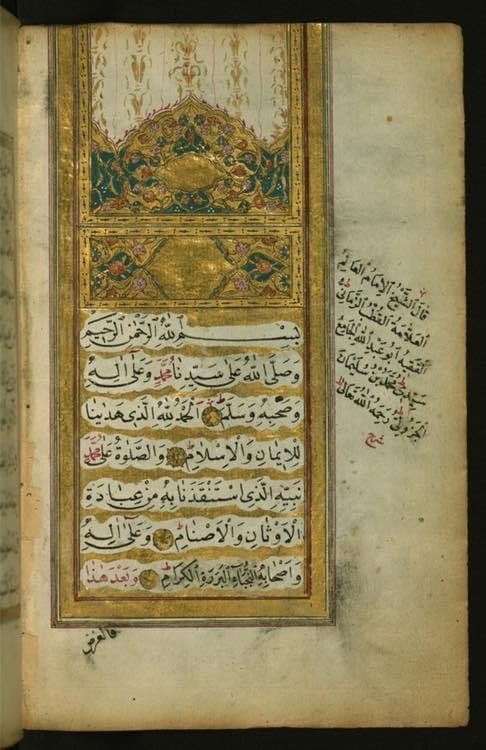 بِسْمِ اللهِ الرَّحْمٰنِ الرَّحِيمِ
وَصَلَّى اللهُ عَلَى سَيِّدِنَا مُحَمَّدٍ وَعَلَى اٰلِهِ
وَصَحْبِهِ وَسَلَّمَ اَلْحَمْدُ لِلهِ الَّذِي هَدٰينَا
لِلْاِيمَانِ وَالْاِسْلَامِ وَالصَّلٰوةُ عَلَى مُحَمَّدٍ
نَبِيِّهِ الَّذِي اسْتَنْقَذَنَا بِهِ مِنْ عِبَادَةِ
الْاَوْثَانِ وَالْاَصْنَامِ وَعَلٰى اٰلِهِ
وَاَصْحَابِهِ النُّجَبَاءِ الْبَرَرَةِ الْكِرَامِ وَبَعْدَ هٰذَا
فالغرض
قَالَ الشَّيْخُ الْاِمَامُ الْعَالِمُ
الْعَلَّامَةُ الْقُطْبُ الزَّمَانِي
الْفَقِيهُ اَبُو عَبْدِ اللهِ الْجَامِعُ
سَيِّدِي مُحَمَّدُ بْنُ سُلَيْمَانَ
الْجَزُولِيُّ رَحِمَهُ اللهُ تَعَالَى
شرح